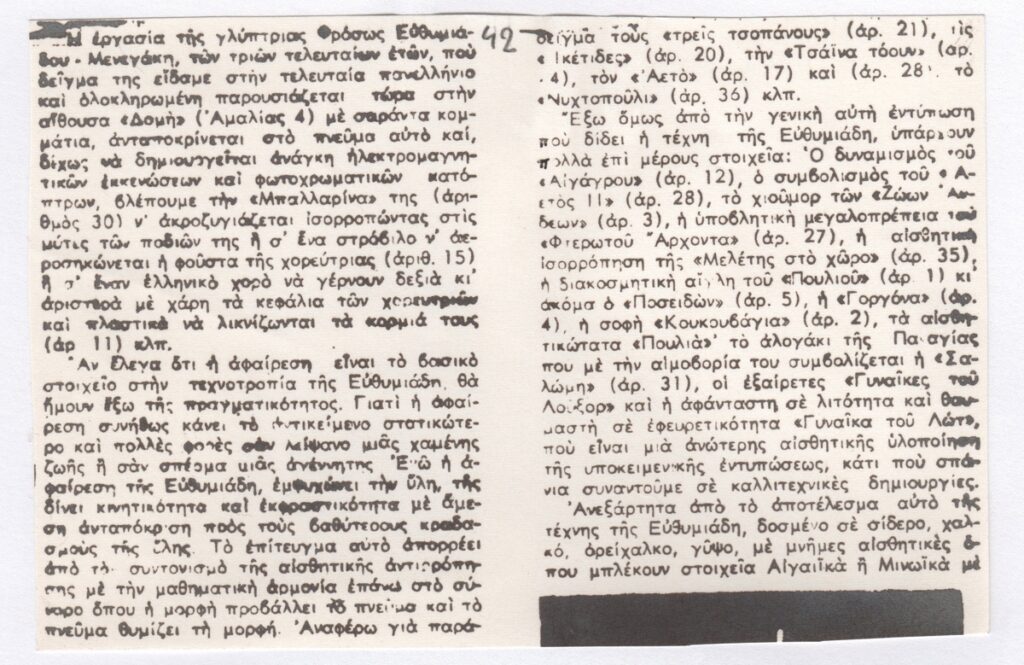 Ἡ ἐργασία τῆς γλύπτριας Φρόσως Εὐθυμιά-
δου - Μενεγάκη, τῶν τριῶν τελευταίων ἐτῶν, ποὺ
δεῖγμα της εἴδαμε στὴν τελευταία πανελλήνιο
καὶ ὁλοκληρωμένη παρουσιάζεται τώρα στὴν
αἴθουσα «Δομὴ» (Ἀμαλίας 4) μὲ σαράντα κομ-
μάτια, ἀνταποκρίνεται στὸ πνεῦμα αὐτὸ καί,
δίχως νὰ δημιουργεῖται ἀνάγκη ἠλεκτρομαγνη-
τικῶν ἐκκενώσεων καὶ φωτοχρωματικῶν κατό-
πτρων, βλέπουμε τὴν «Μπαλλαρίνα» της (ἀρι-
θμὸς 30) ν' ἀκροζυγιάζεται ἰσορροπώντας στὶς
μύτες τῶν ποδιῶν της ἢ σ' ἕνα στρόβιλο ν' ἀε-
ροσηκώνεται ἡ φούστα τῆς χορεύτριας (ἀριθ. 15)
ἢ σ' ἕναν ἑλληνικὸ χορὸ νὰ γέρνουν δεξιὰ κι'
ἀριστερὰ μὲ χάρη τὰ κεφάλια τῶν χορευτριῶν
καὶ πλαστικὰ νὰ λικνίζωνται τὰ κορμιά τους
(ἀρ 11) κλπ.
Ἂν ἔλεγα ὅτι ἡ ἀφαίρεση εἶναι τὸ βασικὸ
στοιχεῖο στὴν τεχνοτροπία τῆς Εὐθυμιάδη, θὰ
ἤμουν ἔξω τῆς πραγματικότητος. Γιατὶ ἡ ἀφαί-
ρεση συνήθως κάνει τὸ ἀντικείμενο στατικώτε-
ρο καὶ πολλὲς φορὲς σὰν λείψανο μιᾶς χαμένης
ζωῆς ἢ σὰν σπέρμα μιᾶς ἀγέννητης Ἐνῶ ἡ ἀ-
φαίρεση τῆς Εὐθυμιάδη, ἐμψυχώνει τὴν ὕλη, τῆς
δίνει κινητικότητα καὶ ἐκφραστικότητα μὲ ἄμε-
ση ἀνταπόκριση πρὸς τοὺς βαθύτερους κραδα-
σμοὺς τῆς ὕλης. Τὸ ἐπίτευγμα αὐτὸ ἀπορρέει
ἀπὸ τὸ συντονισμὸ τῆς αἰσθητικῆς ἀντιρρόπη-
σης μὲ τὴν μαθηματικὴ ἁρμονία ἐπάνω στὸ σύ-
νορο ὅπου ἡ μορφὴ προβάλλει τὸ πνεῦμα καὶ τὸ
πνεῦμα θυμίζει τὴ μορφή. Ἀναφέρω γιὰ παρά-
42
δειγμα τοὺς «τρεῖς τσοπάνους» (ἀρ. 21), τὶς
«Ἱκέτιδες» (ἀρ. 20), τὴν «Τσάϊνα τόουν» (ἀρ.
4), τὸν «Ἀετὸ» (ἀρ. 17) καὶ (ἀρ. 28) τὸ
«Νυχτοπούλι» (ἀρ. 36) κλπ.
Ἔξω ὅμως ἀπὸ τὴν γενικὴ αὐτὴ ἐντύπωση
ποὺ δίδει ἡ τέχνη τῆς Εὐθυμιάδη, ὑπάρχουν
πολλὰ ἐπὶ μέρους στοιχεῖα: Ὁ δυναμισμὸς τοῦ
«Αἰγάγρου» (ἀρ. 12), ὁ συμβολισμὸς τοῦ «Ἀ-
ετὸς II» (ἀρ. 28), τὸ χιοῦμορ τῶν «Ζώων Ἄν-
δεων» (ἀρ. 3), ἡ ὑποβλητικὴ μεγαλοπρέπεια τοῦ
«Φτερωτοῦ Ἄρχοντα» (ἀρ. 27), ἡ αἰσθητικὴ
ἰσορρόπηση τῆς «Μελέτης στὸ χῶρο» (ἀρ. 35),
ἡ διακοσμητικὴ αἴγλη τοῦ «Πουλιοῦ» (ἀρ. 1) κι'
ἀκόμα ὁ «Ποσειδῶν» (ἀρ. 5), ἡ «Γοργόνα» (ἀρ.
4), ἡ σοφὴ «Κουκουβάγια» (ἀρ. 2), τὰ αἰσθη-
τικώτατα «Πουλιὰ» τὸ ἀλογάκι τῆς Παναγίας
που μὲ τὴν αἱμοβορία του συμβολίζεται ἡ «Σα-
λώμη» (ἀρ. 31), οἱ ἐξαίρετες «Γυναῖκες τοῦ
Λούξορ» καὶ ἡ ἀφάνταστη σὲ λιτότητα καὶ θαυ-
μαστὴ σὲ ἐφευρετικότητα «Γυναίκα τοῦ Λώτ»,
ποὺ εἶναι μιὰ ἀνώτερης αἰσθητικῆς ὑλοποίηση
τῆς υποκειμενικῆς ἐντυπώσεως, κάτι ποὺ σπά-
νια συναντοῦμε σὲ καλλιτεχνικὲς δημιουργίες.
Ἀνεξάρτητα ἀπὸ τὸ ἀποτέλεσμα αὐτὸ τῆς
τέχνης τῆς Εὐθυμιάδη, δοσμένο σὲ σίδερο, χαλ-
κό, ὀρείχαλκο, γῦψο, μὲ μνῆμες αἰσθητικὲς ὅ-
που μπλέκουν στοιχεῖα Αἰγαιϊκὰ ἢ Μινωϊκὰ μὲ